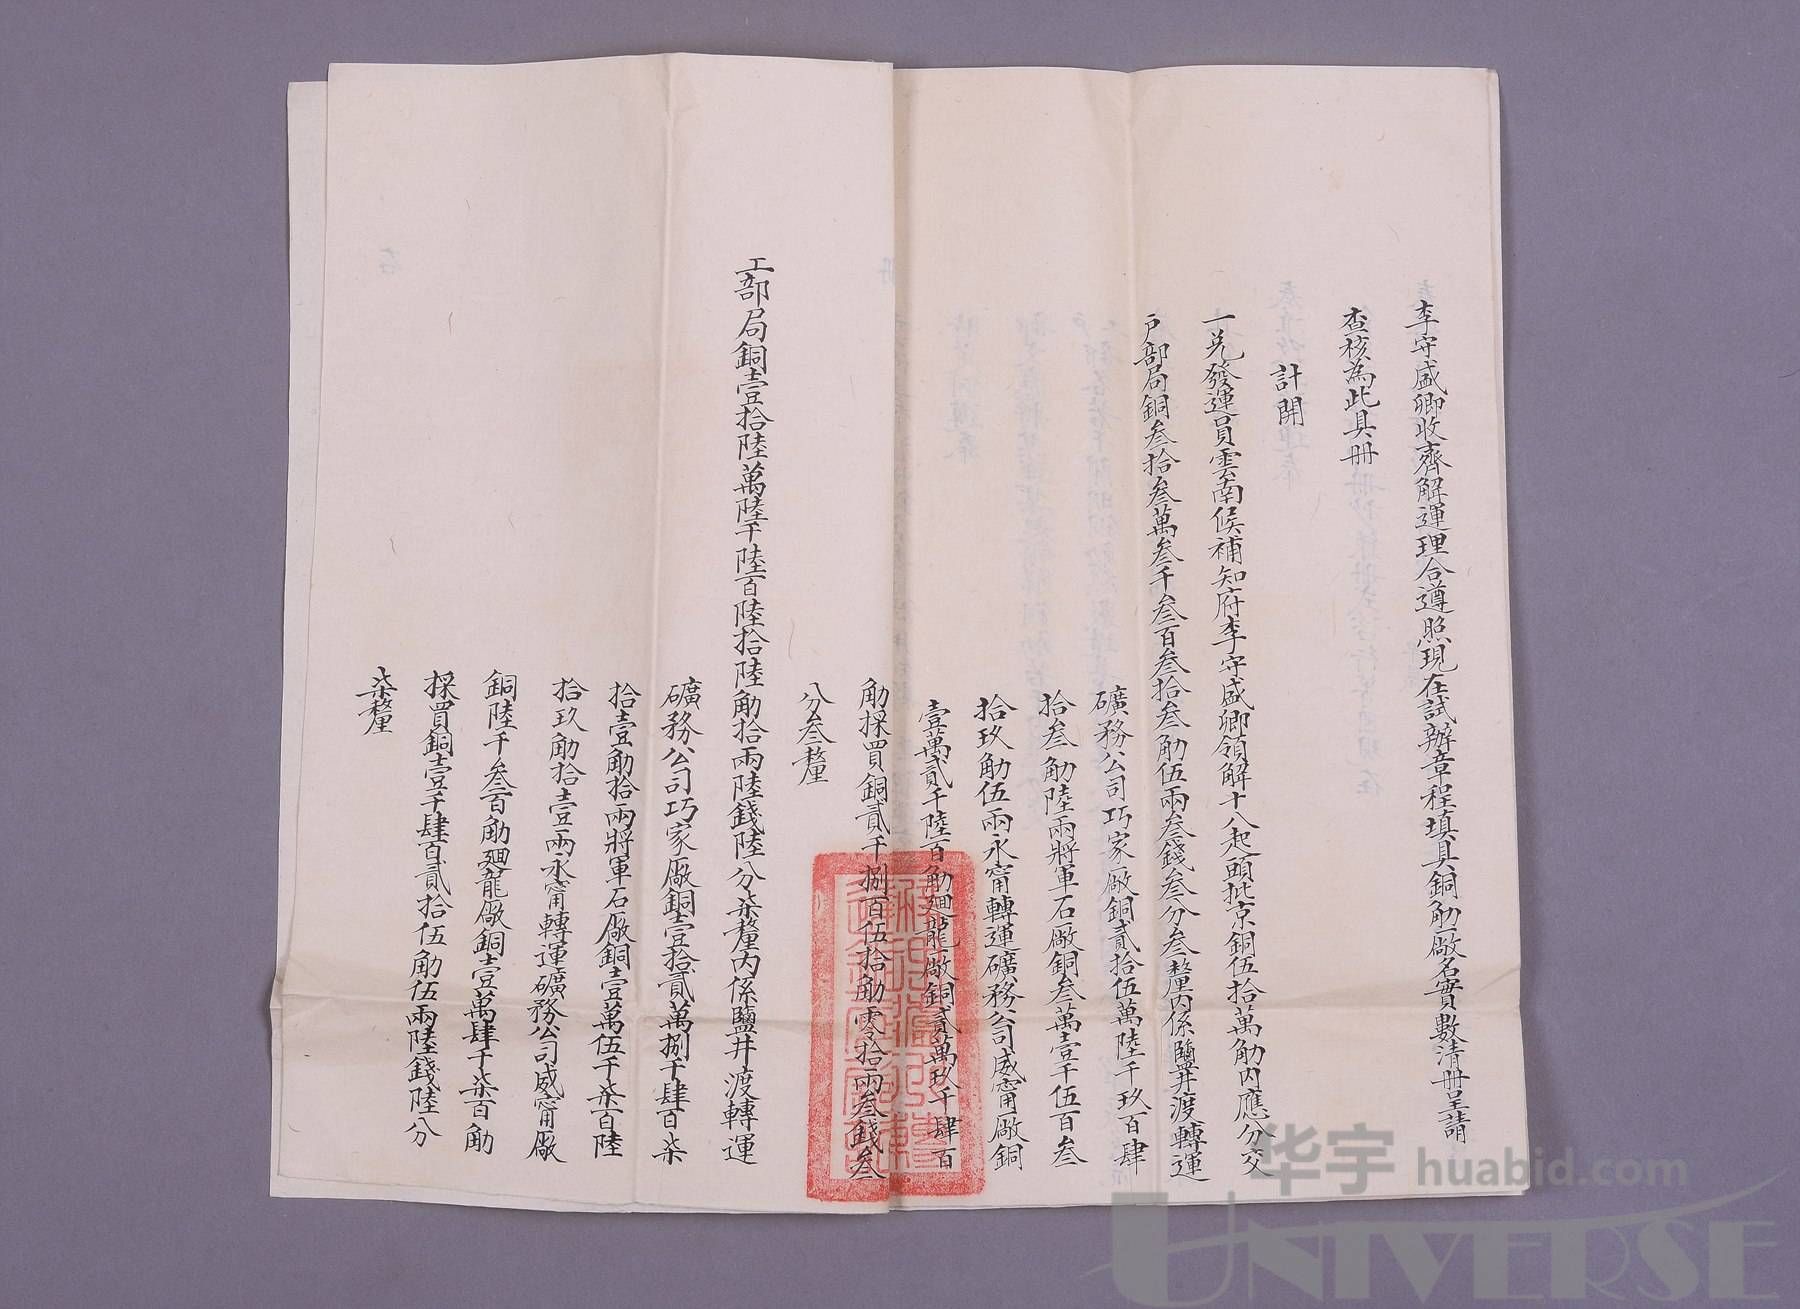 李守盛卿收齊解運理合遵照現在試辦章程填具銅觔廠名實數清册呈請
查核為此具册
計開
一兌發運員雲南候補知府李守盛卿領解十八起頭批京銅伍拾萬觔內應分交
戶部局銅叁拾叁萬叁千叁百叁拾叁觔伍兩叁錢叁分叁釐內係鹽井渡轉運
礦務公司巧家廠銅貳拾伍萬陸千玖百肆
拾叁觔陸兩將軍石廠銅叁萬壹千伍百叁
拾玖觔伍兩永甯轉運礦務公司威甯廠銅
壹萬貳千陸百觔廻龍廠銅貳萬玖千肆百
觔採買銅貳千捌百伍拾觔零拾兩叁錢叁
分叁釐
工部局銅壹拾陸萬陸千陸百陸拾陸觔拾兩陸錢陸分柒釐內係鹽井渡轉運
礦務公司巧家廠銅壹拾貳萬捌千肆百柒
拾壹觔拾兩將軍石廠銅壹萬伍千柒百陸
拾玖觔拾壹兩永甯轉運礦務公司威甯廠
銅陸千叁百觔廻龍廠銅壹萬肆千柒百觔
採買銅壹千肆百貳拾伍觔伍兩陸錢陸分
柒釐
华宇 huabid.com
UNIVERSE